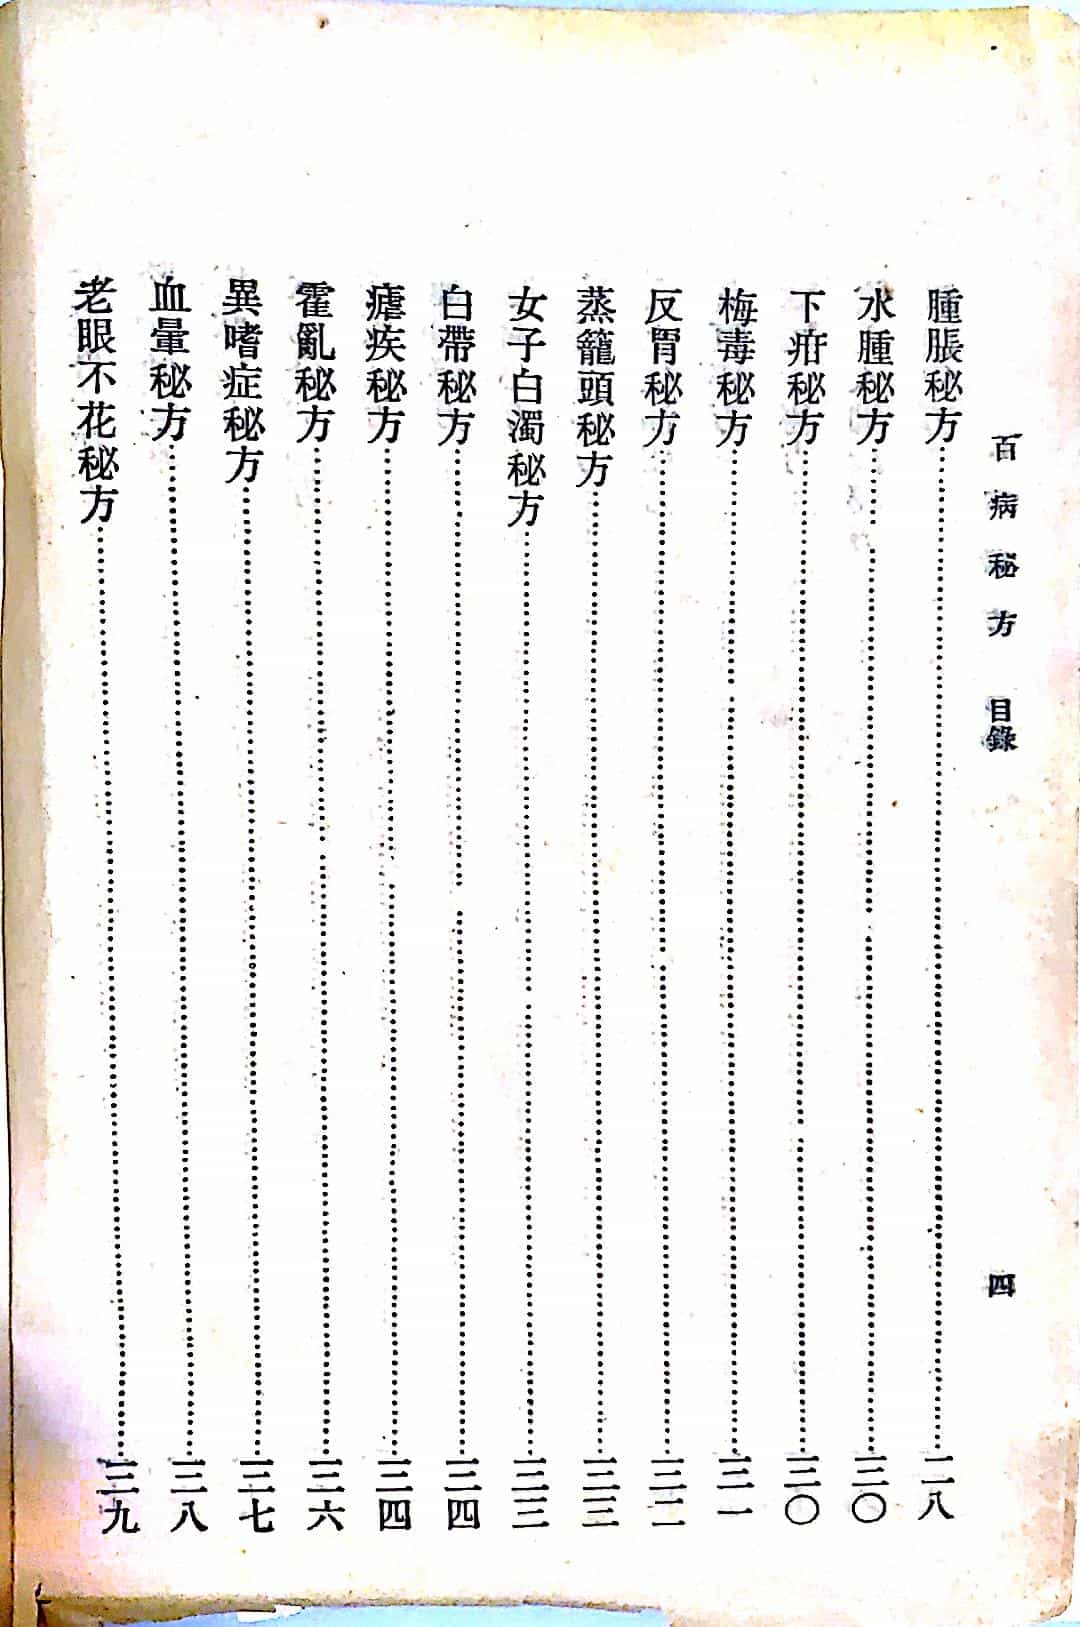 百病秘方 目錄 四
腫脹秘方……二八
水腫秘方……三〇
下疳秘方……三〇
梅毒秘方……三一
反胃秘方……三二
蒸籠頭秘方……三三
女子白濁秘方……三三
白帶秘方……三四
瘧疾秘方……三四
霍亂秘方……三六
異嗜症秘方……三七
血暈秘方……三八
老眼不花秘方……三九